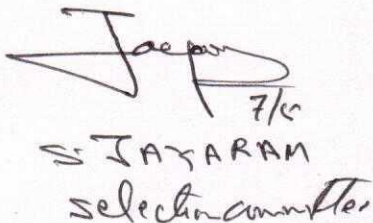 S. JAYARAM
Selection committee